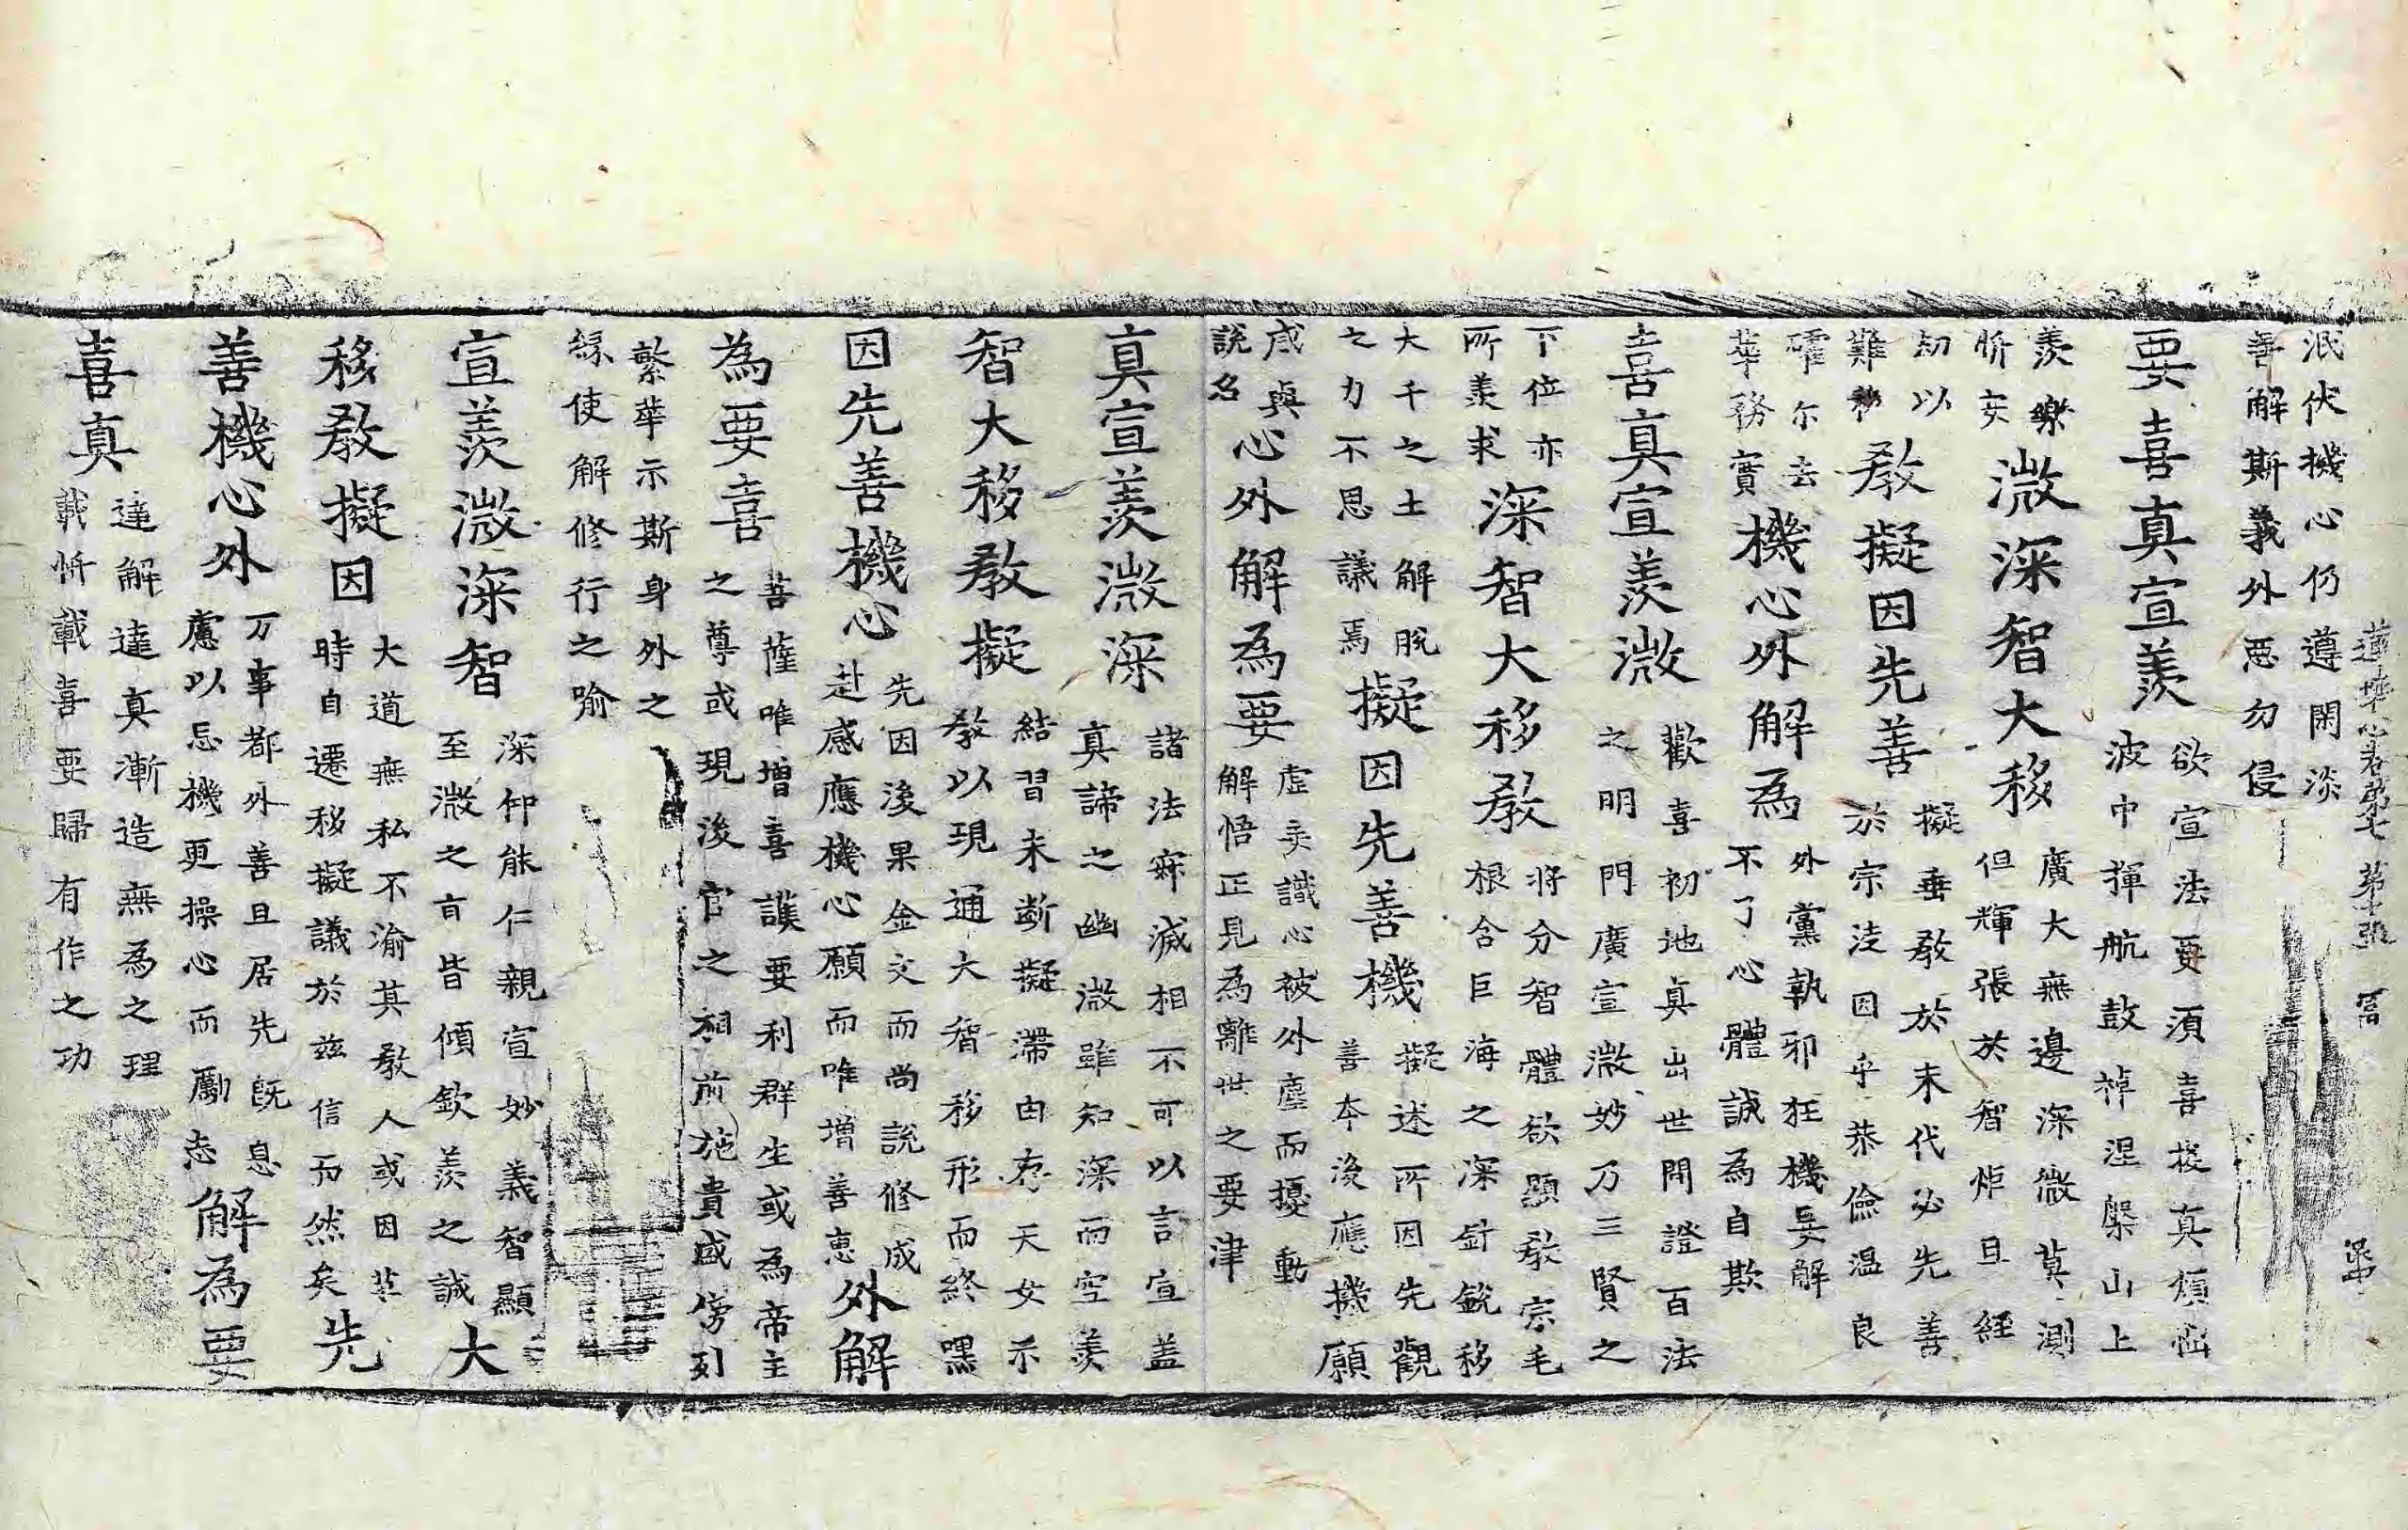 蓮華心卷第七 第十張 冨
泯伏機心仍遵閑淡
善解斯義外惡勿侵
要喜真宣羨
欲宣法要須喜拔真煩惱
波中揮航鼓棹涅槃山上
羨樂
忻妄
微深智大移
廣大無邊深微莫測
但輝張於智炬且經
劫以
難移
教擬因先善
擬垂教於末代必先善
於宗法因乎恭儉温良
確尔去
華務實
機心外解為
外黨執邪狂機妄解
不了心體誠為自欺
喜真宣羨微
歡喜初地真出世間證百法
之明門廣宣微妙乃三賢之
下位亦
所羨求
深智大移教
將分智體欲顯教宗毛
根含巨海之深針銳移
大千之土解脫
之力不思議焉
擬因先善機
擬述所因先觀
善本後應機願
咸與
說名
心外解為要
虛妄識心被外塵而擾動
解悟正見為離世之要津
真宣羨微深
諸法寂滅相不可以言宣盖
真諦之幽微雖知深而空羨
智大移教擬
結習未斷擬滯由存天女示
教以現通大智移形而終嘿
因先善機心
先因後果金文而尚說修成
赴感應機心願而唯增善惠
外解
為要喜
菩薩唯增喜護要利群生或為帝主
之尊或現後官之相前施貴盛傍列
繁華示斯身外之
緣使解修行之喻
宣羨微深智
深仰能仁親宣妙義智顯
至微之言皆傾欽羨之誠
大
移教擬因
大道無私不渝其教人或因革
時自遷移擬議於兹信而然矣
先
善機心外
万事都外善且居先既息
慮以忘機更操心而勵志
解為要
喜真
達解達真漸造無為之理
載忻載喜要歸有作之功